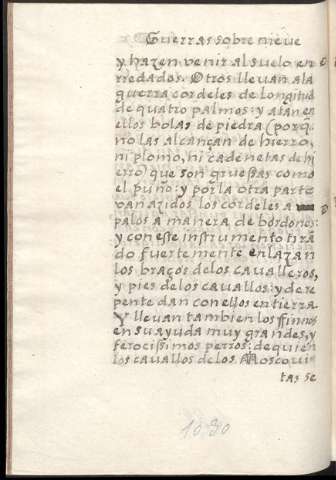 Guerras sobre nieve
y hazen venir al suelo en
rredados. Otros llevan a la
guerra cordeles de longitud
de quatro palmos: y atan en
ellos bolas de piedra (porq
no las alcançan de hierro,
ni plomo, ni cadenetas de hi
erro) que son gruessas como
el puño: y por la otra parte
van azidos los cordeles a
palos a manera de bordones:
y con este instrumento tirā
do fuertemente enlazan
los braços de los cavalleros,
y pies de los cavallos: y de re
pente dan con ellos en tierra.
Y llevan tambien los ffinnos
en su ayuda muy grandes, y
ferocissimos perros: de quien
los cavallos de los Moscovi
tas se
10.30